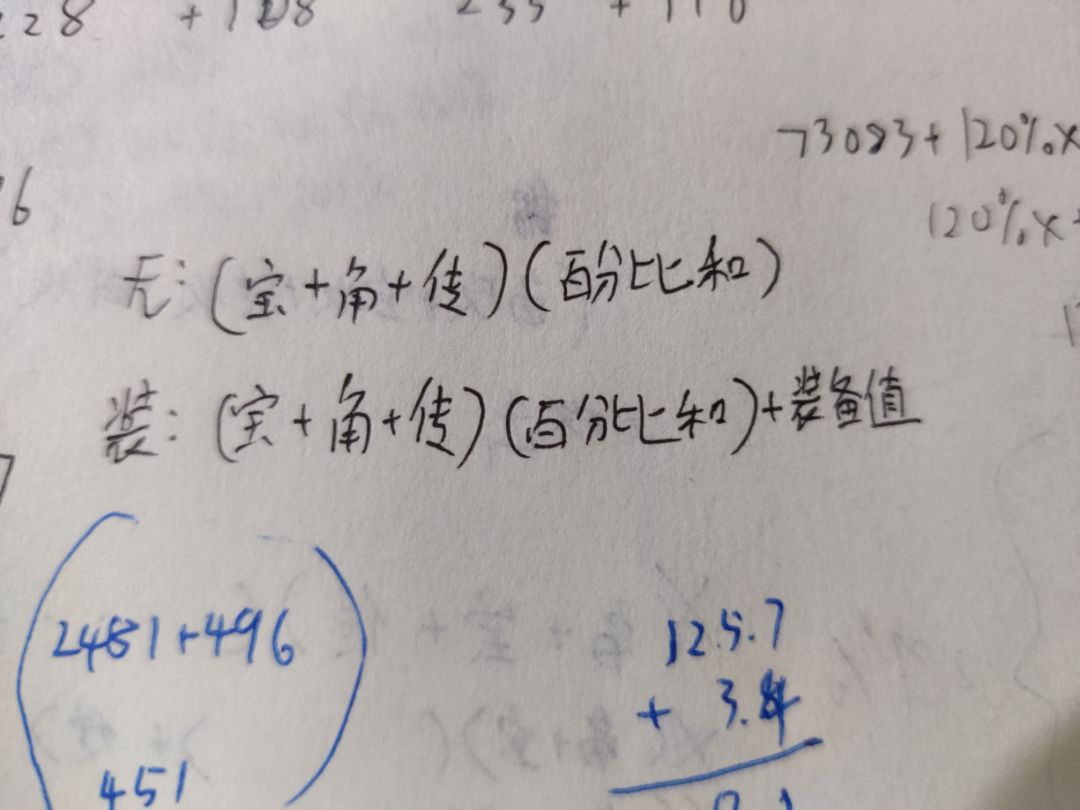 228 +108 233 +110
73083+120%x
6
120%x
无:(宝+角+传)(百分比和)
装:(宝+角+传)(百分比和)+装备值
2481+496
125.7
+ 3.4
451